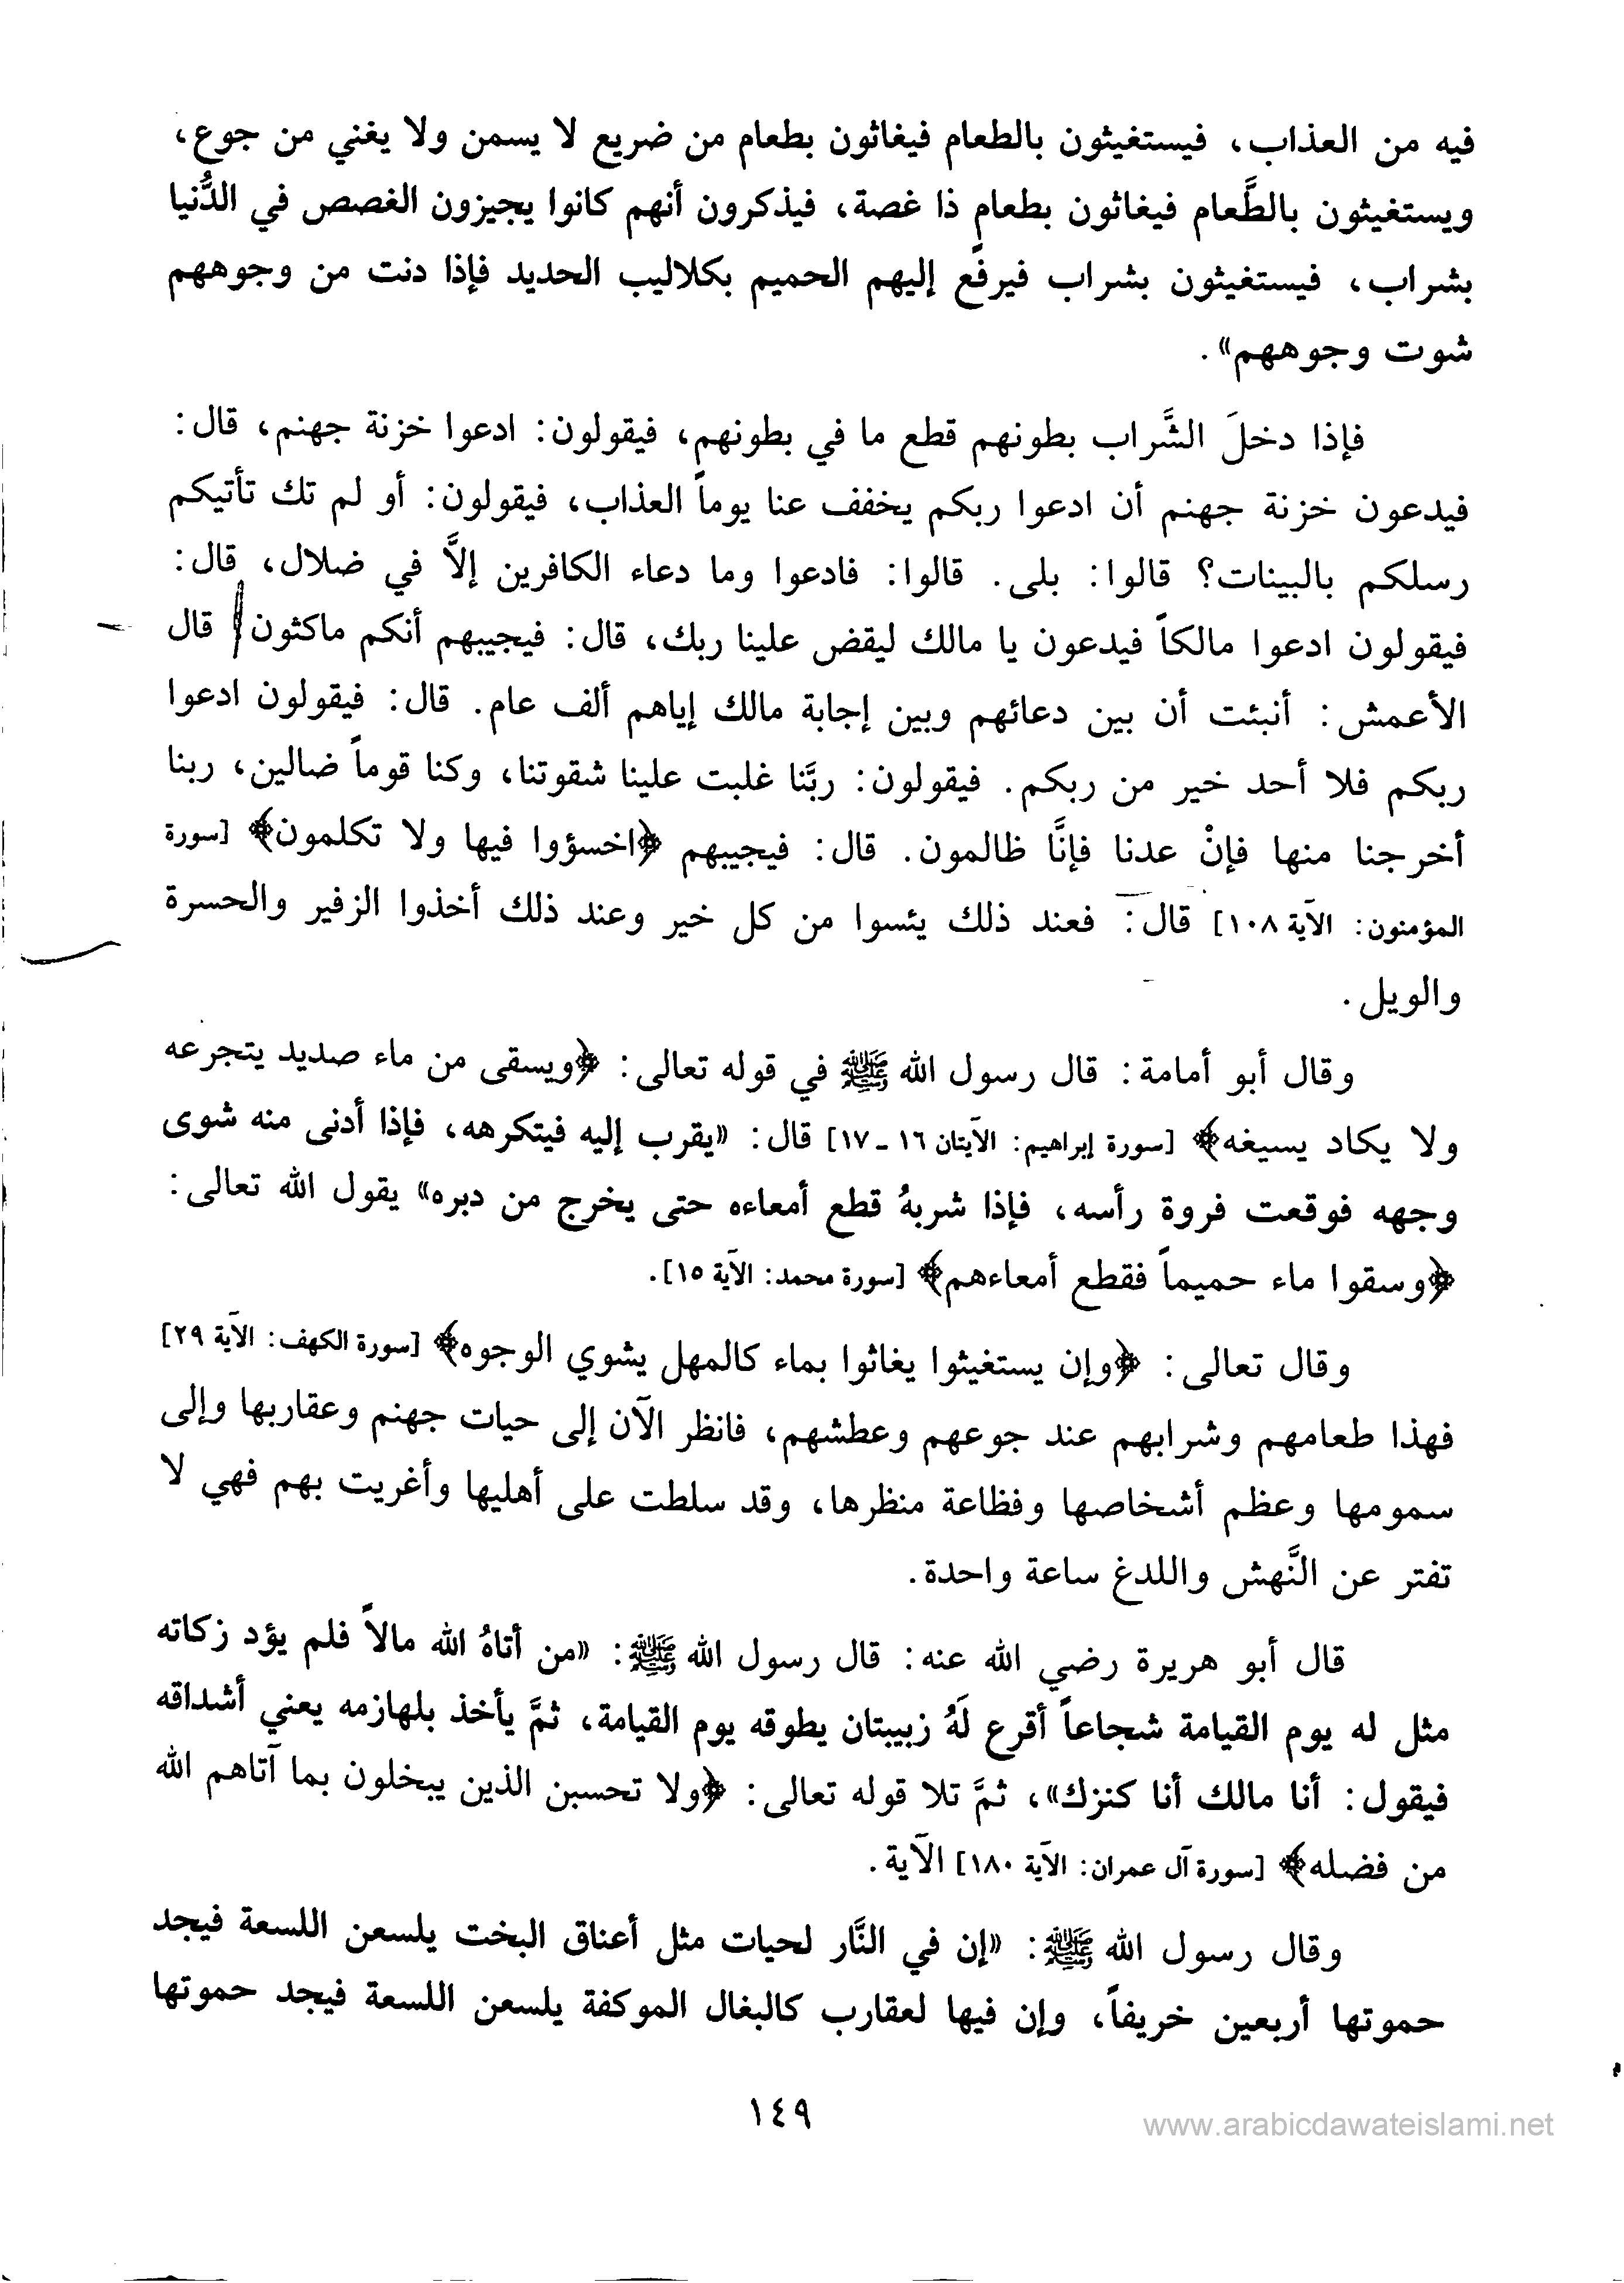 فيه من العذاب، فيستغيثون بالطعام فيغاثون بطعام من ضريع لا يسمن ولا يغني من جوع،
ويستغيثون بالطَّعام فيغاثون بطعام ذا غصة، فيذكرون أنهم كانوا يجيزون الغصص في الدُّنيا
بشراب، فيستغيثون بشراب فيرفع إليهم الحميم بكلاليب الحديد فإذا دنت من وجوههم
شوت وجوههم».
فإذا دخلَ الشَّراب بطونهم قطع ما في بطونهم، فيقولون: ادعوا خزنة جهنم، قال:
فيدعون خزنة جهنم أن ادعوا ربكم يخفف عنا يوماً العذاب، فيقولون: أو لم تك تأتيكم
رسلكم بالبينات؟ قالوا: بلى. قالوا: فادعوا وما دعاء الكافرين إلاَّ في ضلال، قال:
فيقولون ادعوا مالكاً فيدعون يا مالك ليقض علينا ربك، قال: فيجيبهم أنكم ماكثون قال
الأعمش: أنبئت أن بين دعائهم وبين إجابة مالك إياهم ألف عام. قال: فيقولون ادعوا
ربكم فلا أحد خير من ربكم. فيقولون: ربَّنا غلبت علينا شقوتنا، وكنا قوماً ضالين، ربنا
أخرجنا منها فإنْ عدنا فإنَّا ظالمون. قال: فيجيبهم ﴿اخسؤوا فيها ولا تكلمون﴾ [سورة
المؤمنون: الآية ١٠٨] قال: فعند ذلك يئسوا من كل خير وعند ذلك أخذوا الزفير والحسرة
والويل.
وقال أبو أمامة: قال رسول الله ﷺ في قوله تعالى: ﴿ويسقى من ماء صديد يتجرعه
ولا يكاد يسيغه﴾ [سورة إبراهيم: الآيتان ١٦ - ١٧] قال: «يقرب إليه فيتكرهه، فإذا أدنى منه شوى
وجهه فوقعت فروة رأسه، فإذا شربهُ قطع أمعاءه حتى يخرج من دبره» يقول الله تعالى:
﴿وسقوا ماء حميماً فقطع أمعاءهم﴾ [سورة محمد: الآية ١٥].
وقال تعالى: ﴿وإن يستغيثوا يغاثوا بماء كالمهل يشوي الوجوه﴾ [سورة الكهف: الآية ٢٩]
فهذا طعامهم وشرابهم عند جوعهم وعطشهم، فانظر الآن إلى حيات جهنم وعقاربها وإلى
سمومها وعظم أشخاصها وفظاعة منظرها، وقد سلطت على أهليها وأغريت بهم فهي لا
تفتر عن النَّهش واللدغ ساعة واحدة.
قال أبو هريرة رضي الله عنه: قال رسول الله ﷺ: «من أتاهُ الله مالاً فلم يؤد زكاته
مثل له يوم القيامة شجاعاً أقرع لَهُ زبيبتان يطوقه يوم القيامة، ثمَّ يأخذ بلهازمه يعني أشداقه
فيقول: أنا مالك أنا كنزك»، ثمَّ تلا قوله تعالى: ﴿ولا تحسبن الذين يبخلون بما آتاهم الله
من فضله﴾ [سورة آل عمران: الآية ١٨٠] الآية.
وقال رسول الله ﷺ: «إن في النَّار لحيات مثل أعناق البخت يلسعن اللسعة فيجد
حموتها أربعين خريفاً، وإن فيها لعقارب كالبغال الموكفة يلسعن اللسعة فيجد حموتها
١٤٩
www.arabicdawateislami.net